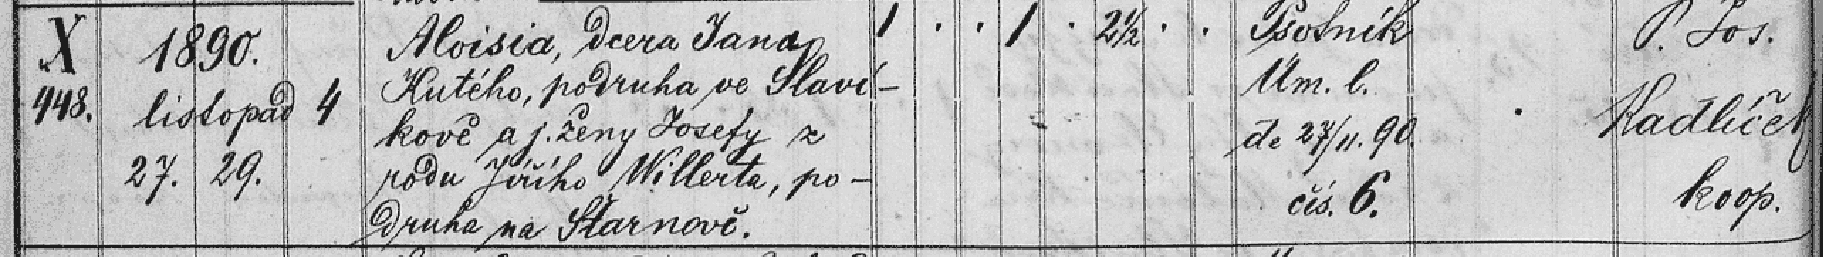 X 1890. Aloisia, dcera Jana 1 . . 1 . 2½ . . Psotník P. Jos.
448. listopad 4 Kutého, podruha ve Slaví- Úm. l. Kadlíček
kově a j. ženy Josefy z dto 27/11. 90.
27. 29. rodu Jiřího Willerta, po- čís. 6. koop.
druha na Štarnově.